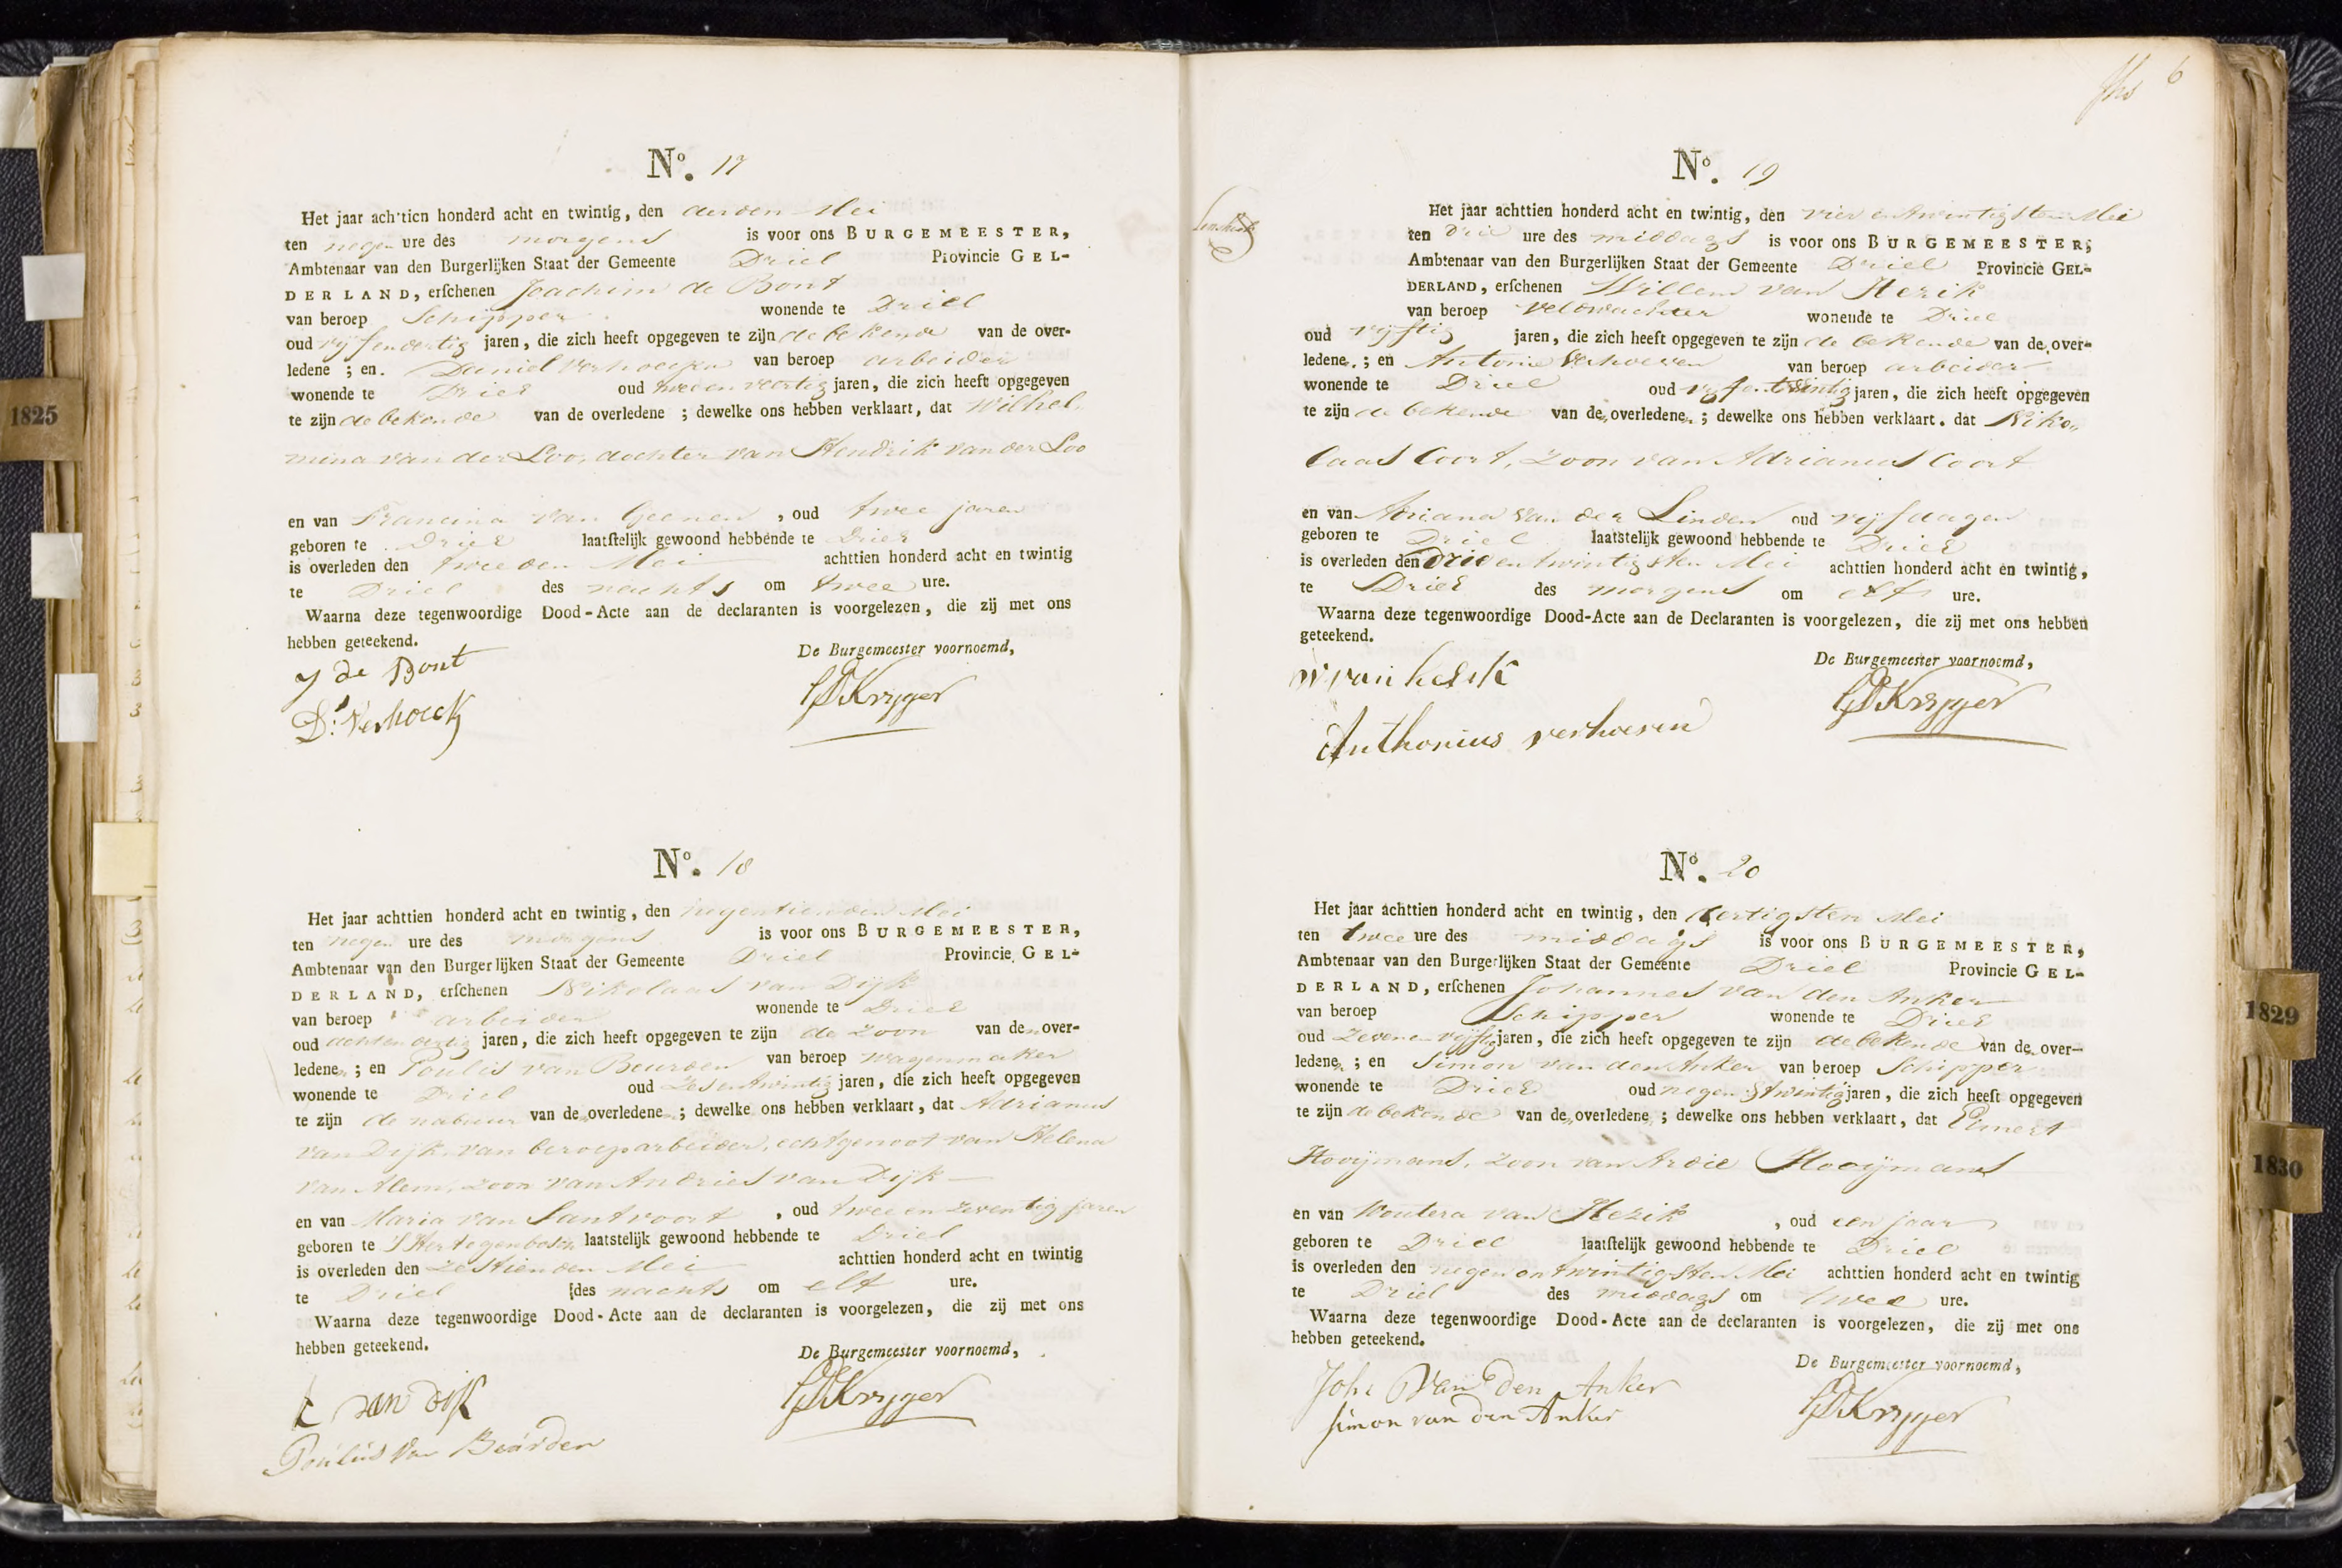 N.º 17
Het jaar achttien honderd acht en twintig, den derden Mei
ten negen ure des morgens is voor ons BURGEMEESTER,
Ambtenaar van den Burgerlijken Staat der Gemeente Driel Provincie GEL-
DERLAND, erschenen Joachim de Bont
van beroep Schipper wonende te Driel
oud vijfendertig jaren, die zich heeft opgegeven te zijn de bekende van de over-
ledene ; en. Daniel Verhoeckx van beroep arbeider
wonende te Driel oud twee en veertig jaren, die zich heeft opgegeven
te zijn de bekende van de overledene ; dewelke ons hebben verklaart, dat Wilhel-
mina van der Loo, dochter van Hendrik van der Loo
en van Francina van Geenen , oud twee jaren
geboren te Driel laatstelijk gewoond hebbende te Driel
is overleden den tweeden Mei achttien honderd acht en twintig
te Driel des nachts om twee ure.
Waarna deze tegenwoordige Dood-Acte aan de declaranten is voorgelezen, die zij met ons
hebben geteekend.
De Burgemeester voornoemd,
J de Bont
D. Verhoeck
GDKryger
N.º 18
Het jaar achttien honderd acht en twintig, den negentienden Mei
ten negen ure des morgens is voor ons BURGEMEESTER,
Ambtenaar van den Burgerlijken Staat der Gemeente Driel Provincie GEL-
DERLAND, erschenen Nikolaas van Dijk
van beroep arbeider wonende te Driel
oud achtendertig jaren, die zich heeft opgegeven te zijn de zoon van den over-
ledenen ; en Poulis van Beurden van beroep wagenmaker
wonende te Driel oud zesentwintig jaren, die zich heeft opgegeven
te zijn de nabuur van de overledene ; dewelke ons hebben verklaart, dat Adrianus
van Dijk, van beroep arbeider, echtgenoot van Helena
van Alem, zoon van Andries van Dijk
en van Maria van Santvoort , oud twee en zeventig jaren
geboren te 's Hertogenbosch laatstelijk gewoond hebbende te Driel
is overleden den zestienden Mei achttien honderd acht en twintig
te Driel des nachts om elf ure.
Waarna deze tegenwoordige Dood-Acte aan de declaranten is voorgelezen, die zij met ons
hebben geteekend.
De Burgemeester voornoemd,
van dijk
Poulus Van Beurden
GDKryger
6
N.º 19
Het jaar achttien honderd acht en twintig, den vier en twintigsten Mei
ten drie ure des middags is voor ons BURGEMEESTER,
Ambtenaar van den Burgerlijken Staat der Gemeente Driel Provincie GEL-
DERLAND, erschenen Willem van Herik
van beroep veldwachter wonende te Driel
oud vijftig jaren, die zich heeft opgegeven te zijn de bekende van de over-
ledene ; en Antonie Verhoeven van beroep arbeider
wonende te Driel oud vijfentwintig jaren, die zich heeft opgegeven
te zijn de bekende van de overledene ; dewelke ons hebben verklaart, dat Niko-
laas Coort, zoon van Adrianus Coort
en van Adriana van der Linden oud vijf dagen
geboren te Driel laatstelijk gewoond hebbende te Driel
is overleden den drie en twintigsten Mei achttien honderd acht en twintig,
te Driel des morgens om elf ure.
Waarna deze tegenwoordige Dood-Acte aan de Declaranten is voorgelezen, die zij met ons hebben
geteekend.
De Burgemeester voornoemd,
W van herik
Anthonius verhoeven
GDKryger
N.º 20
Het jaar achttien honderd acht en twintig, den dertigsten Mei
ten twee ure des middags is voor ons BURGEMEESTER,
Ambtenaar van den Burgerlijken Staat der Gemeente Driel Provincie GEL-
DERLAND, erschenen Johannes van den Anker
van beroep Schipper wonende te Driel
oud zevenenvijftig jaren, die zich heeft opgegeven te zijn de bekende van de over-
ledene ; en Simon van den Anker van beroep Schipper
wonende te Driel oud negen & twintig jaren, die zich heeft opgegeven
te zijn de bekende van de overledene ; dewelke ons hebben verklaart, dat Eimert
Hooijmans, zoon van Ardie Hooijmans
en van Woutera van Herik , oud een jaar
geboren te Driel laatstelijk gewoond hebbende te Driel
is overleden den negen en twintigsten Mei achttien honderd acht en twintig
te Driel des middags om twee ure.
Waarna deze tegenwoordige Dood-Acte aan de declaranten is voorgelezen, die zij met ons
hebben geteekend.
De Burgemeester voornoemd,
Joh: Van Den Anker
Simon van den Anker
GDKryger
1825
1829
1830